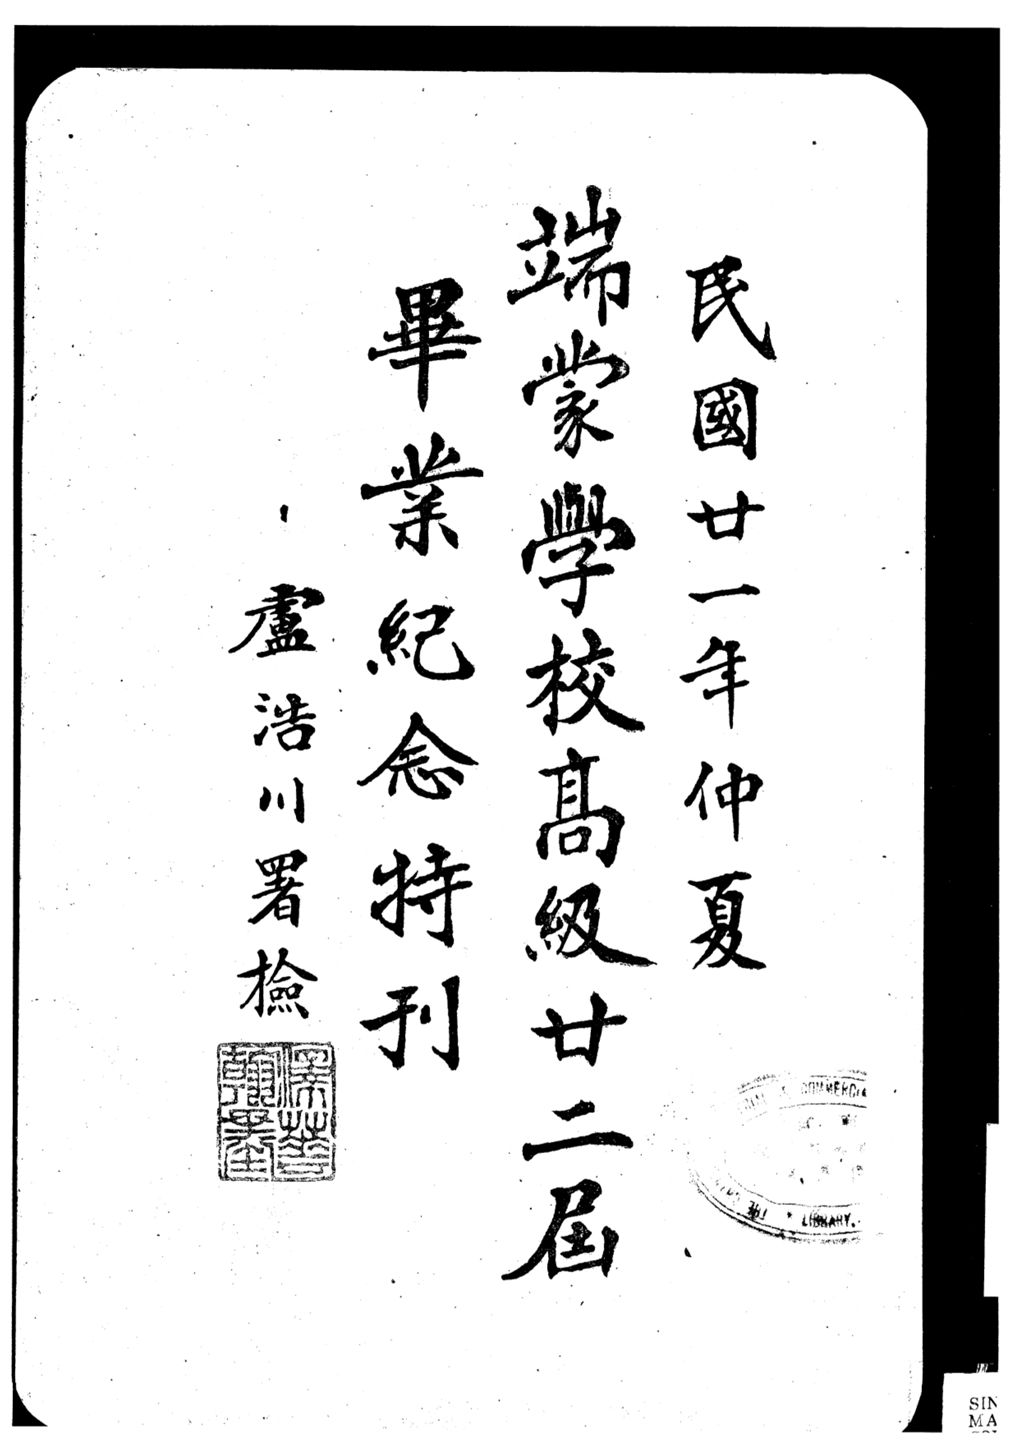 民國廿一年仲夏
端蒙學校高級廿二屆
畢業紀念特刊
盧浩川署檢
COMMERCIA
THE
LIBRARY.
SIN
MA